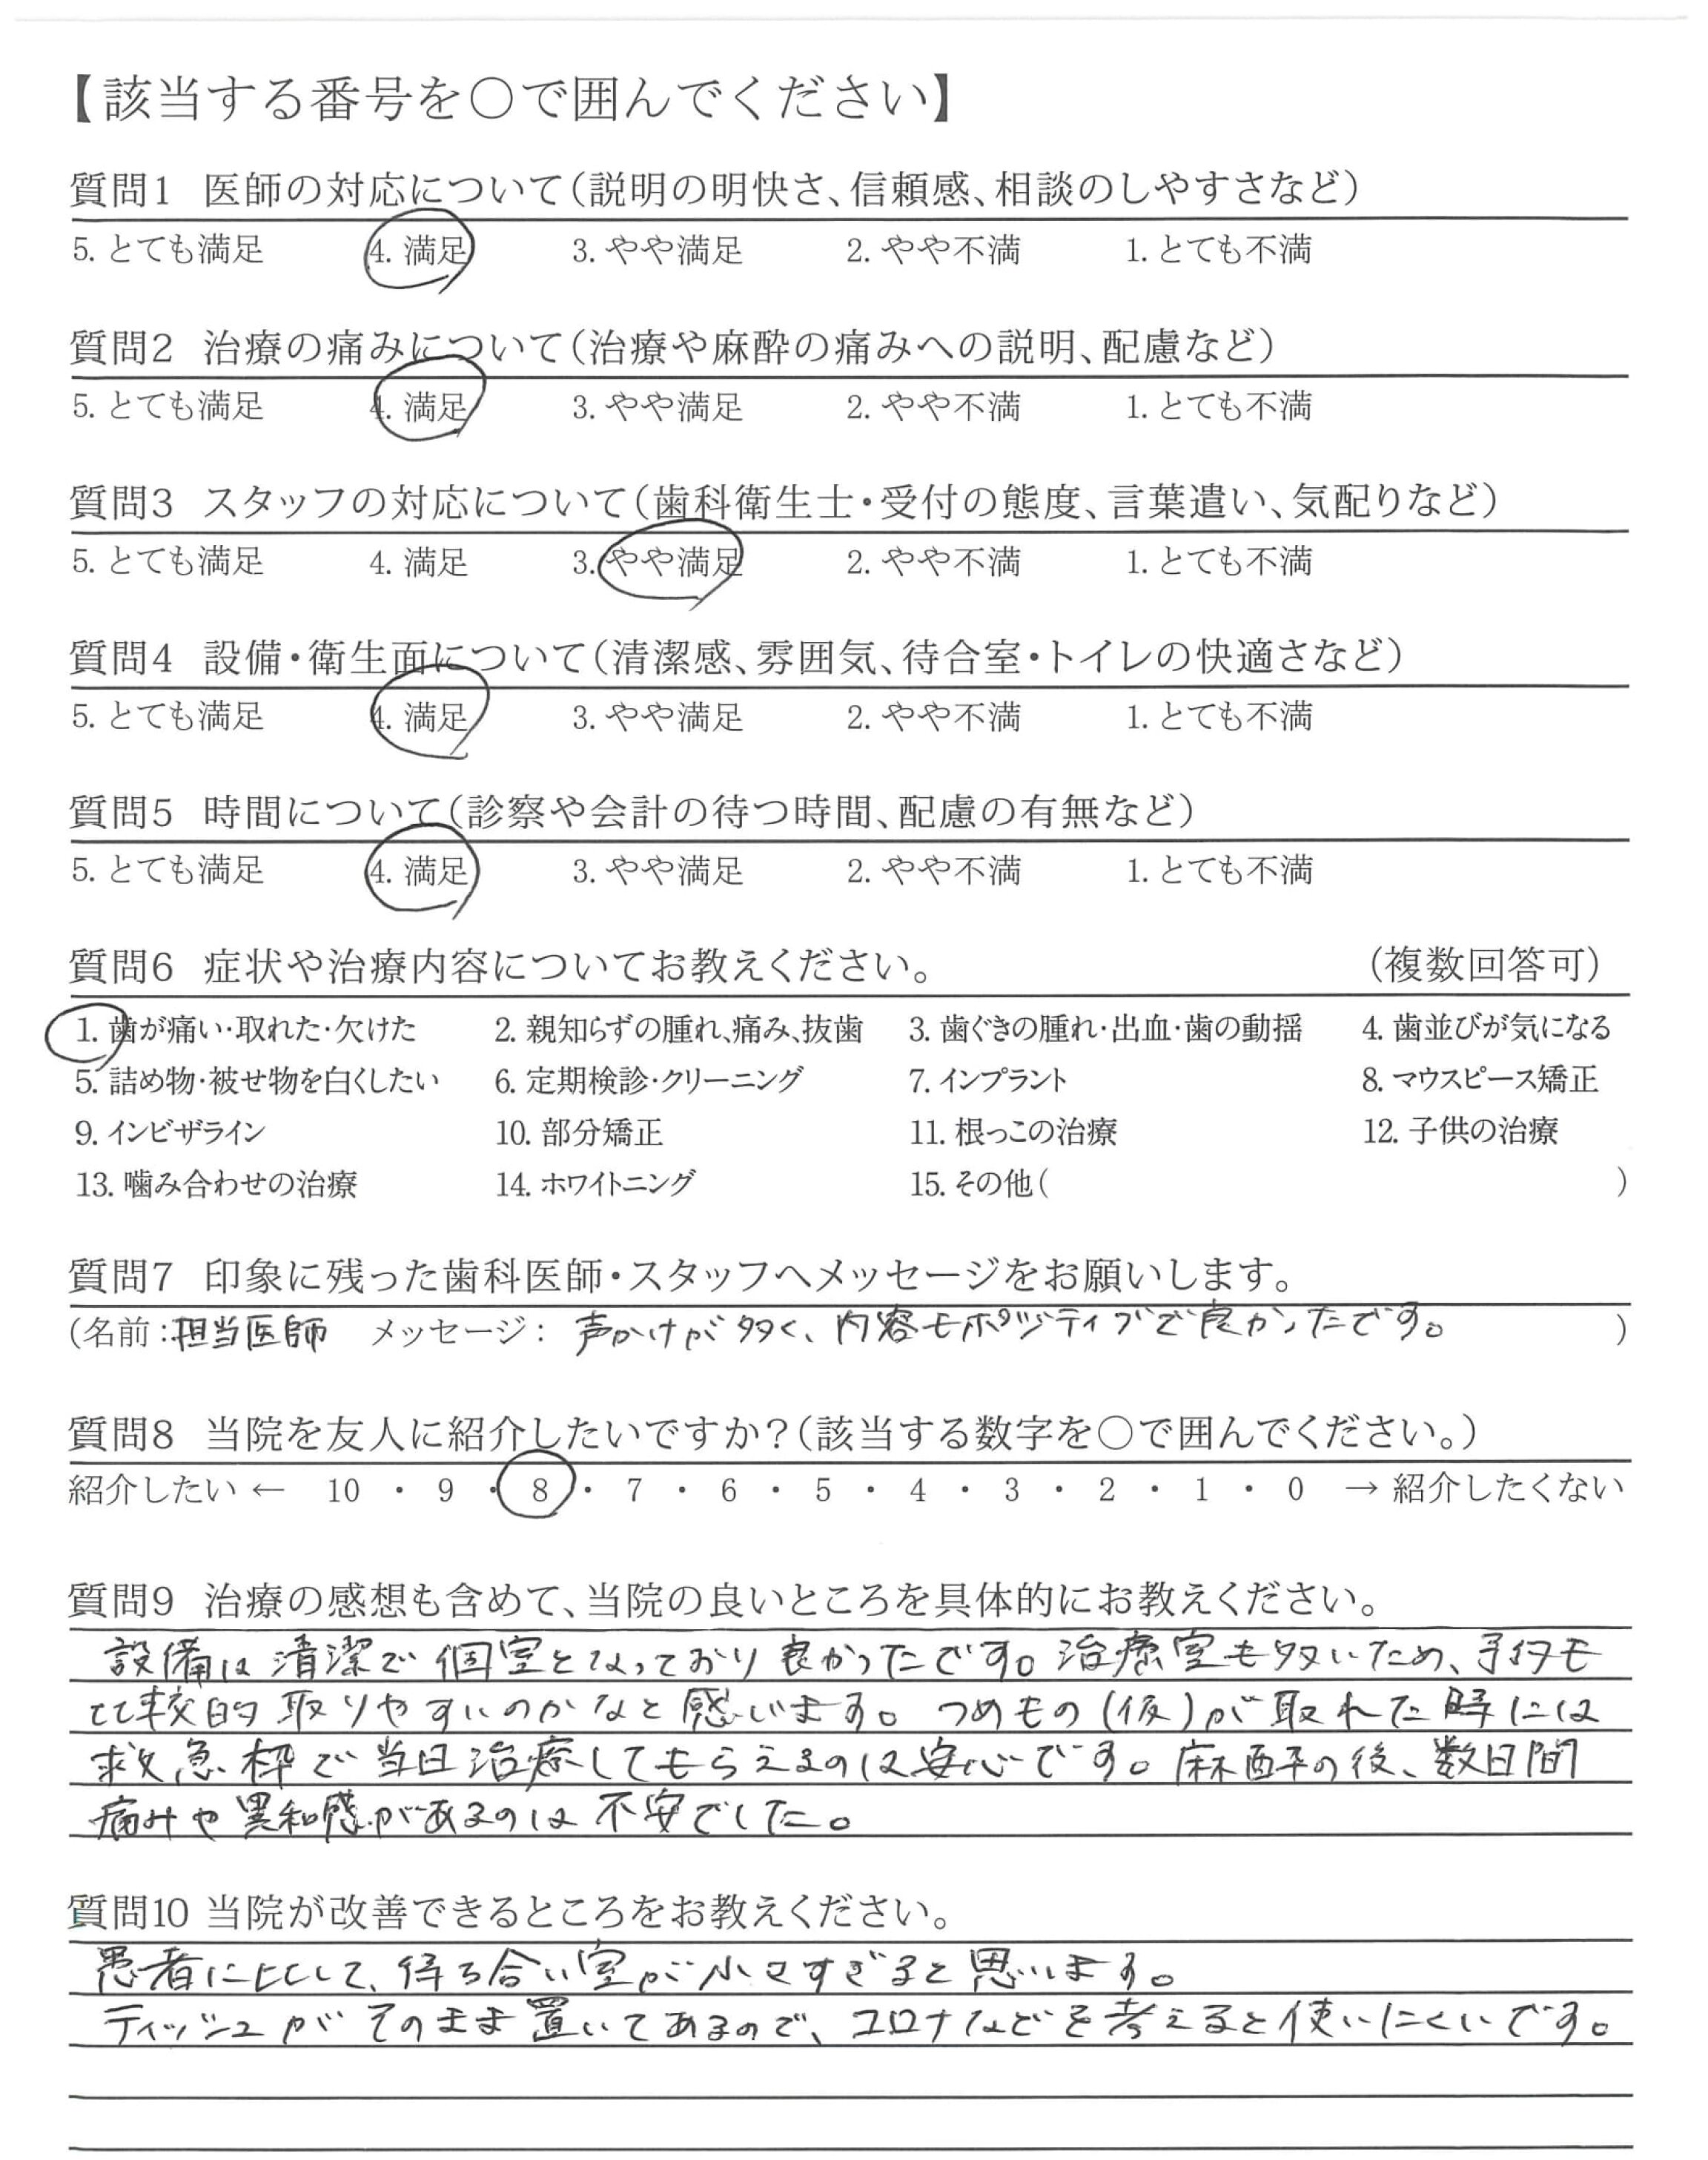 【該当する番号を○で囲んでください】
質問1 医師の対応について(説明の明快さ、信頼感、相談のしやすさなど)
5. とても満足 4. 満足 3. やや満足 2. やや不満 1. とても不満
質問2 治療の痛みについて(治療や麻酔の痛みへの説明、配慮など)
5. とても満足 4. 満足 3. やや満足 2. やや不満 1. とても不満
質問3 スタッフの対応について(歯科衛生士・受付の態度、言葉遣い、気配りなど)
5. とても満足 4. 満足 3. やや満足 2. やや不満 1. とても不満
質問4 設備・衛生面について(清潔感、雰囲気、待合室・トイレの快適さなど)
5. とても満足 4. 満足 3. やや満足 2. やや不満 1. とても不満
質問5 時間について(診察や会計の待つ時間、配慮の有無など)
5. とても満足 4. 満足 3. やや満足 2. やや不満 1. とても不満
質問6 症状や治療内容についてお教えください。 (複数回答可)
1. 歯が痛い・取れた・欠けた 2. 親知らずの腫れ、痛み、抜歯 3. 歯ぐきの腫れ・出血・歯の動揺 4. 歯並びが気になる
5. 詰め物・被せ物を白くしたい 6. 定期検診・クリーニング 7. インプラント 8. マウスピース矯正
9. インビザライン 10. 部分矯正 11. 根っこの治療 12. 子供の治療
13. 噛み合わせの治療 14. ホワイトニング 15. その他( )
質問7 印象に残った歯科医師・スタッフへメッセージをお願いします。
(名前:担当医師 メッセージ: 声かけが多く、内容もポジティブで良かったです。 )
質問8 当院を友人に紹介したいですか?(該当する数字を○で囲んでください。)
紹介したい ← 10 ・ 9 ・ 8 ・ 7 ・ 6 ・ 5 ・ 4 ・ 3 ・ 2 ・ 1 ・ 0 → 紹介したくない
質問9 治療の感想も含めて、当院の良いところを具体的にお教えください。
設備は清潔で個室となっており良かったです。治療室も多いため、予約も
比較的取りやすいのかなと感じます。つめもの(仮)が取れた時には
救急枠で当日治療してもらえるのは安心です。麻酔の後、数日間
痛みや異和感があるのは不安でした。
質問10 当院が改善できるところをお教えください。
患者に比して、待ち合い室が小さすぎると思います。
ティッシュがそのまま置いてあるので、コロナなどを考えると使いにくいです。